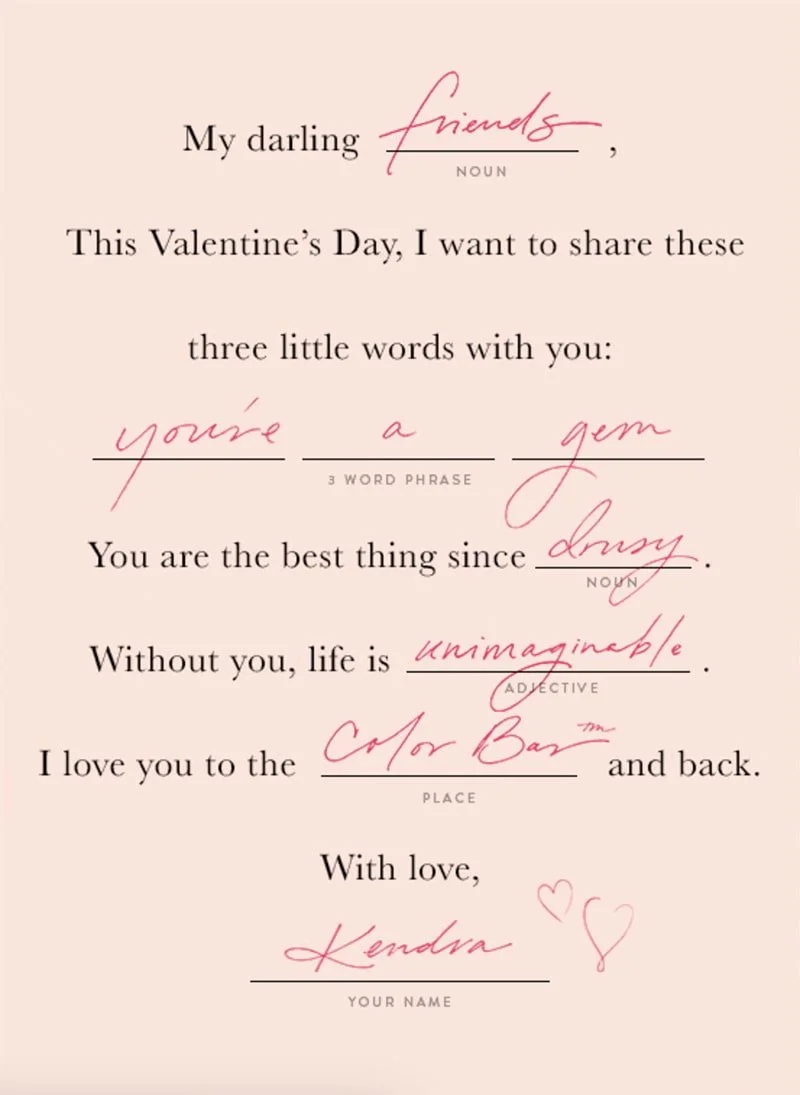 My darling friends,
NOUN
This Valentine's Day, I want to share these
three little words with you:
you're a gem
3 WORD PHRASE
You are the best thing since drusy.
NOUN
Without you, life is unimaginable.
ADJECTIVE
I love you to the Color Bar™ and back.
PLACE
With love,
Kendra
YOUR NAME